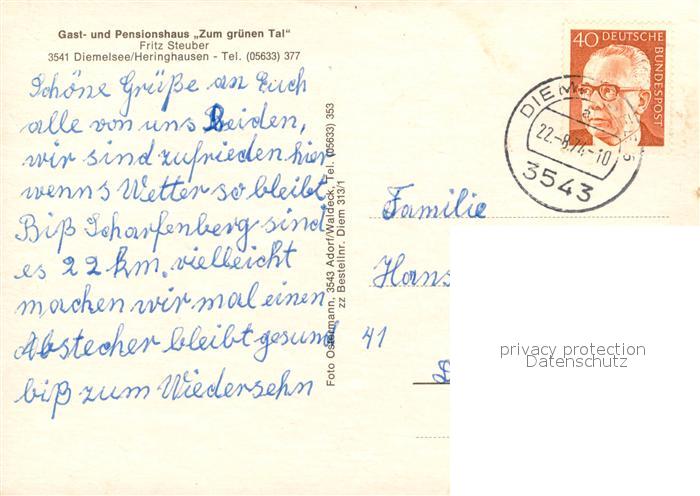 Gast- und Pensionshaus „Zum grünen Tal"
Fritz Steuber
3541 Diemelsee/Heringhausen - Tel. (05633) 377
Schöne Grüße an Euch
alle von uns Beiden,
wir sind zufrieden hier
wenns Wetter so bleibt
Biß Scharfenberg sind
es 22 km, vielleicht
machen wir mal einen
Abstecher bleibt gesund
biß zum Wiedersehn
Foto Ostermann, 3543 Adorf/Waldeck, Tel. (05633) 353
zz Bestellnr. Diem 313/1
40 DEUTSCHE BUNDESPOST
22.-8.74.-10
3543
Familie
Hans
41
privacy protection
Datenschutz